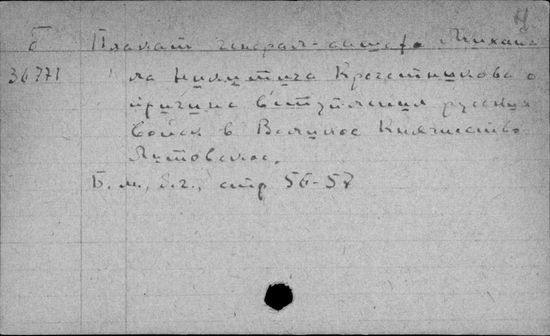 Ч
Б Плакат генерал-аншефа Михаи
36771 ла Никитича Кречетникова о
причине вступления русских
войск в Великое Княжество
Литовское.
Б. м., б. г., стр 56-58